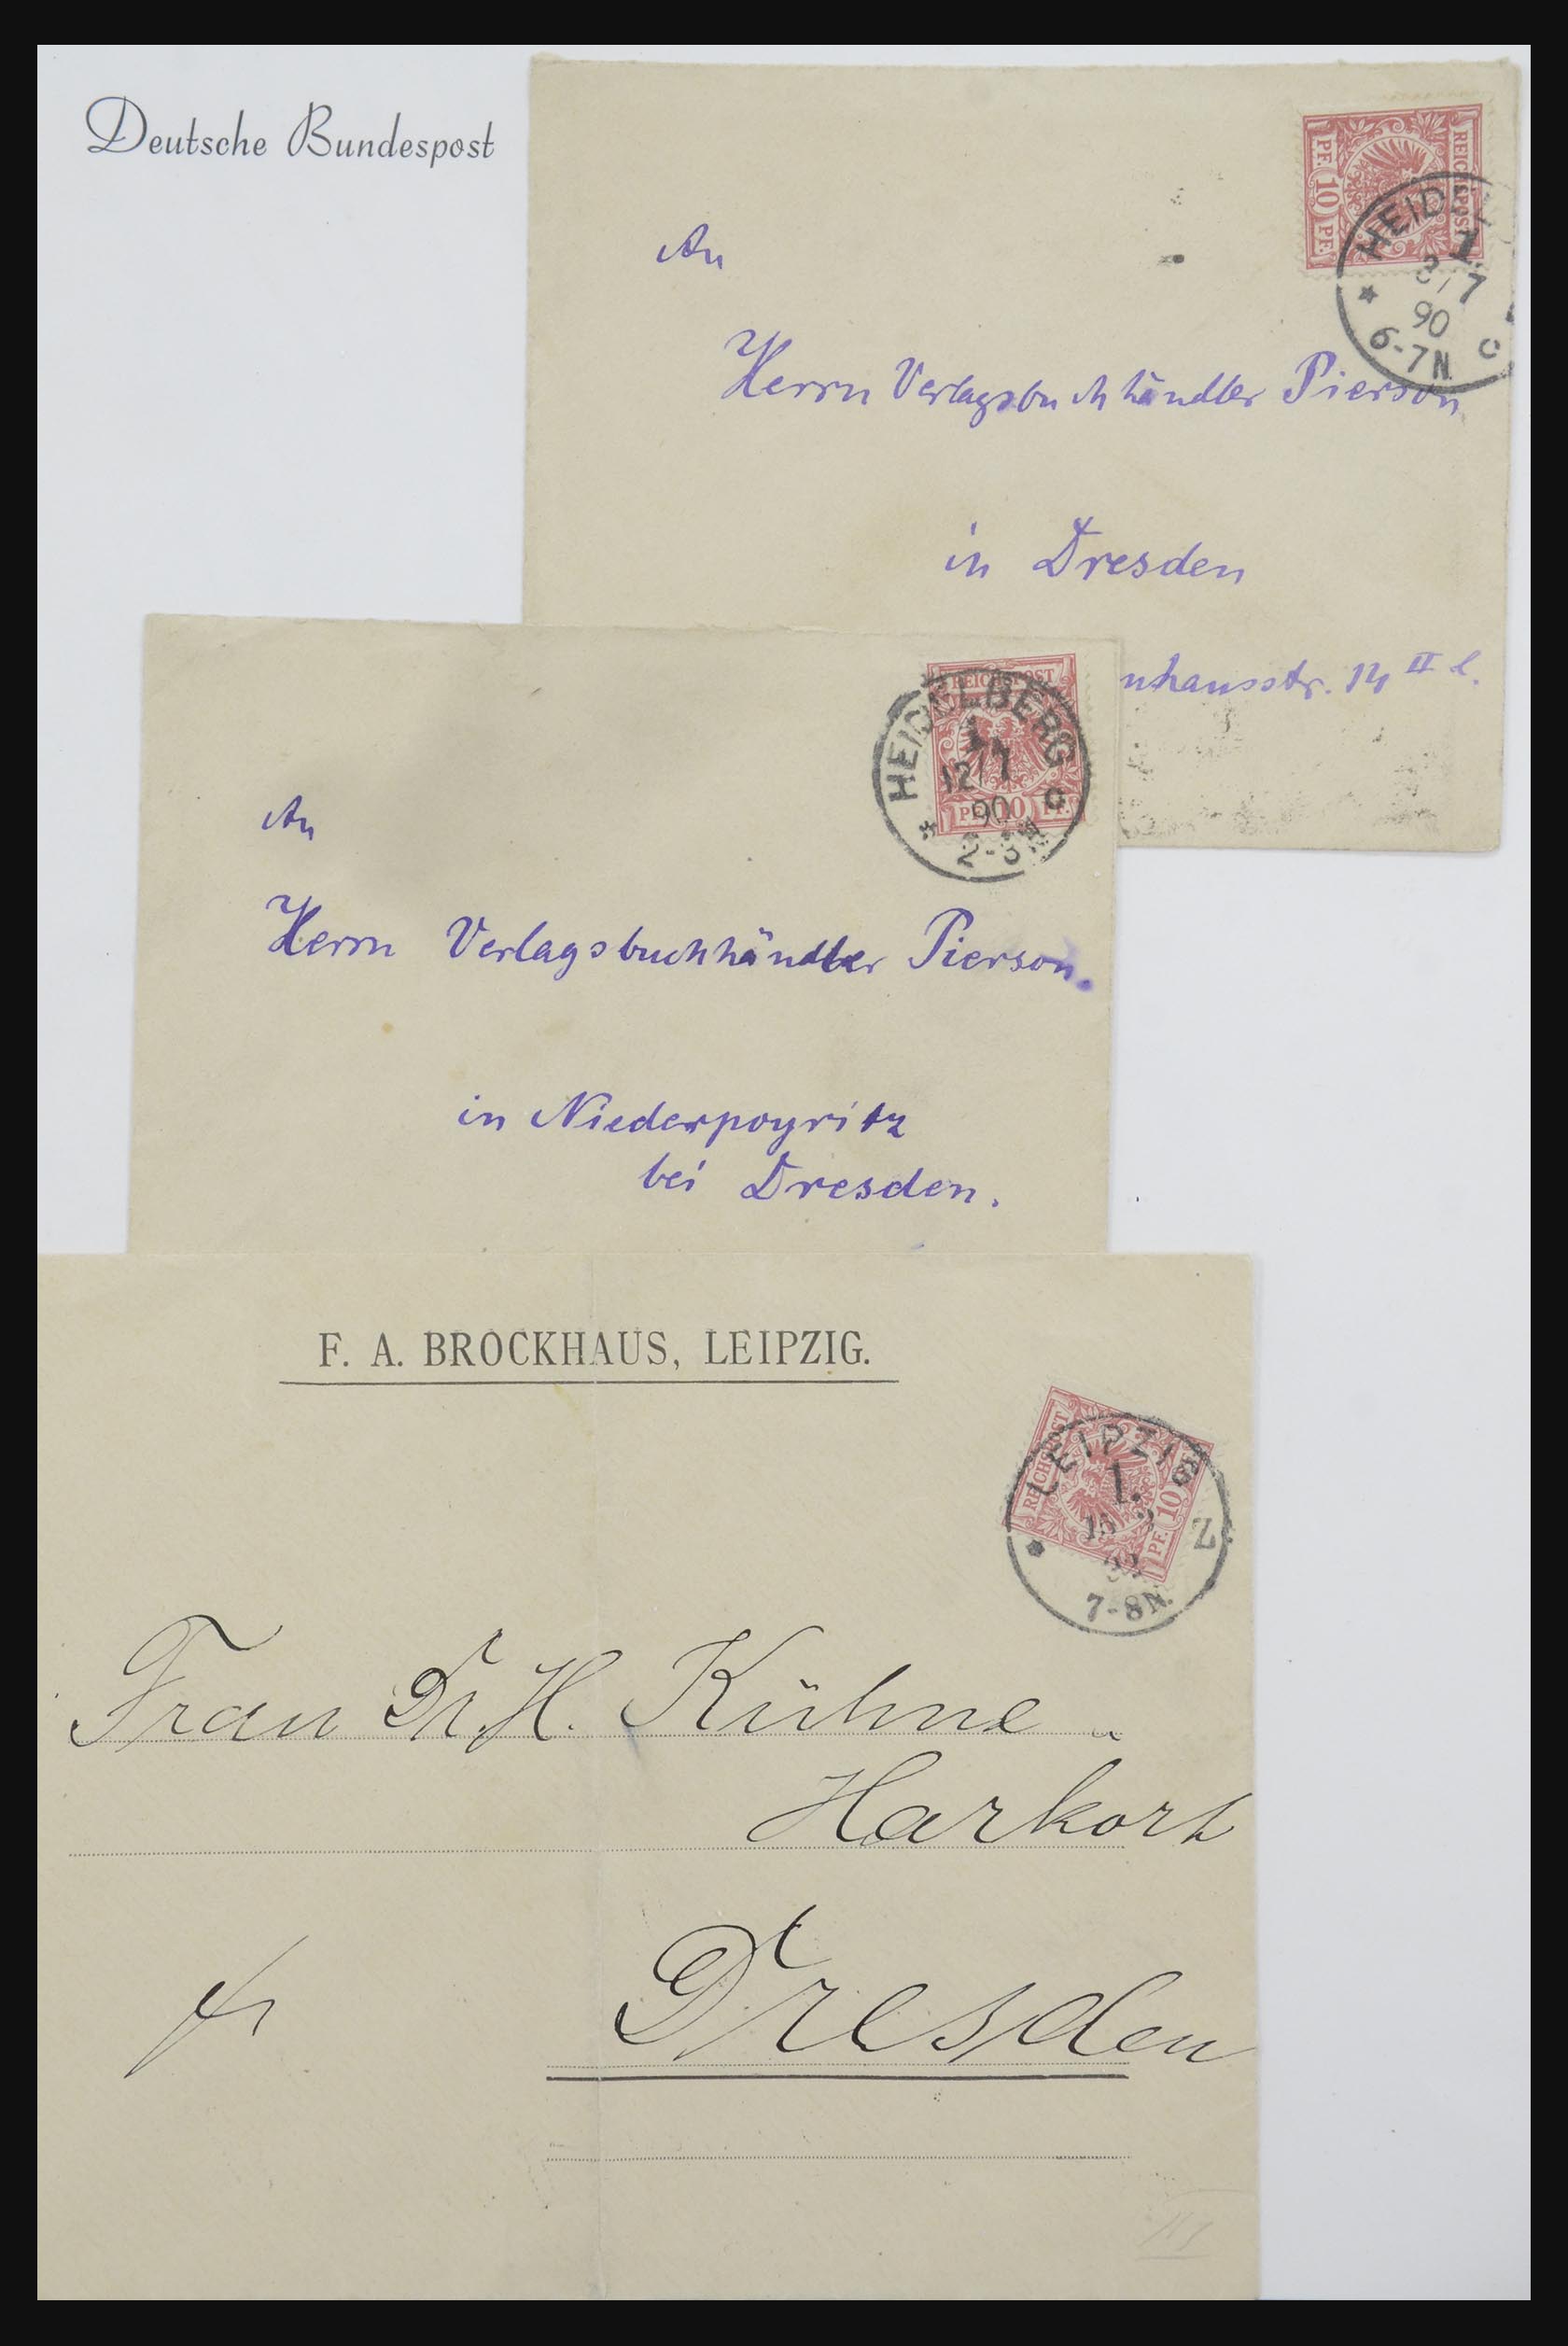 Deutsche Bundespost
REICHSPOST
PF. 10 PF.
HEID
1.
3/7
90
6-7N.
C
An
Herrn Verlagsbuchhändler Pierson
in Dresden
nhausstr. 14 II l.
REICHSPOST
PF. 10 PF.
HEIDELBERG
1.
12/7
90
2-3N.
c
An
Herrn Verlagsbuchhändler Pierson.
in Niederpoyritz
bei Dresden.
F. A. BROCKHAUS, LEIPZIG.
REICHSPOST
PF. 10
LEIPZIG
1.
Z.
7-8N.
Frau Dr. H. Kühne
Harkort
fr
Dresden
III